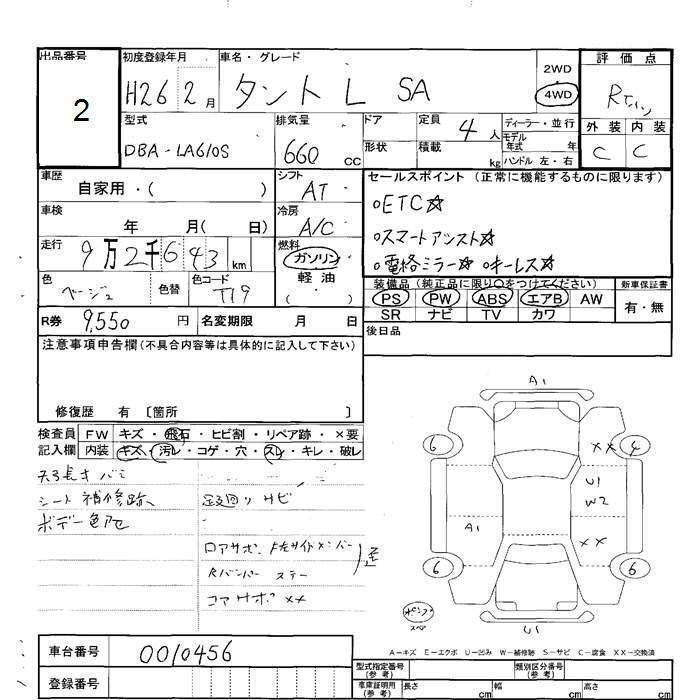 出品番号
2
初度登録年月
H26 2月
車名・グレード
タント L SA
2WD
4WD
評価点
外装 内装
C C
型式
DBA-LA610S
排気量
660 cc
ドア
形状
定員 4人
積載 kg
ディーラー・並行
モデル年式 年
ハンドル 左・右
車歴
自家用・( )
シフト
AT
車検
年 月( 日)
冷房
A/C
走行
9万2千643km
燃料
ガソリン
軽油
( )
色
ベージュ
色替
色コード
T19
R券 9,550円
名変期限 月 日
セールスポイント(正常に機能するものに限ります)
○ETC☆
○スマートアシスト☆
○電格ミラー☆ ○キーレス☆
装備品(純正品に限り○をつけてください)
PS PW ABS エアB AW
SR ナビ TV カワ
新車保証書
有・無
後日品
注意事項申告欄(不具合内容等は具体的に記入して下さい)
修復歴 有 〔箇所 〕
検査員記入欄
FW キズ・飛石・ヒビ割・リペア跡・×要
内装 キズ・汚レ・コゲ・穴・スレ・キレ・破レ
シート補修跡
ボデー色アセ
足廻りサビ
コアサポ ××
A1
6
××
4
U1
W2
A1
××
6
6
スペア
U1
A-キズ E-エクボ U-凹み W-補修跡 S-サビ C-腐食 XX-交換済
車台番号
0010456
登録番号
型式指定番号(参考)
類別区分番号(参考)
車庫証明用(参考)
長さ cm
幅 cm
高さ cm